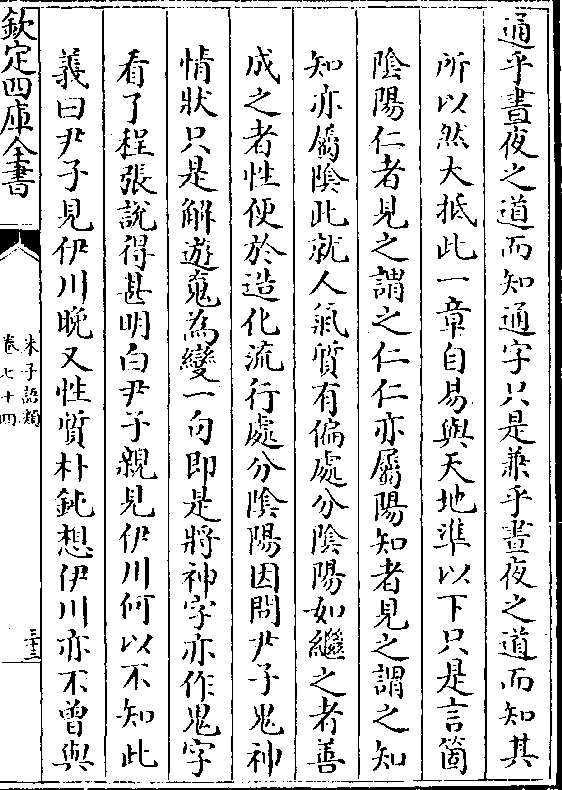 通乎晝夜之道而知通字只是兼乎晝夜之道而知其
所以然大抵此一章自易與天地準以下只是言箇
陰陽仁者見之謂之仁仁亦屬陽知者見之謂之知
知亦屬陰此就人氣質有偏處分陰陽如繼之者善
成之者性便於造化流行處分陰陽因問尹子鬼神
情狀只是解遊䰟為變一句即是將神字亦作鬼字
看了程張說得甚明白尹子親見伊川何以不知此
義曰尹子見伊川晚又性質朴鈍想伊川亦不曾與
欽定四庫全書
朱子語類
卷七十四
三十三